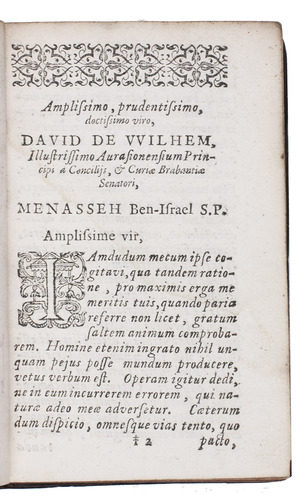 Amplissimo, prudentissimo,
doctissimo viro,
DAVID DE VVILHEM,
Illustrissimo Aurasionensium Prin-
cipi à Concilijs, & Curiæ Brabantiæ
Senatori,
MENASSEH Ben-Israel S.P.
Amplissime vir,
IAmdudum metum ipse co-
gitavi, qua tandem ratio-
ne, pro maximis erga me
meritis tuis, quando paria
referre non licet, gratum
saltem animum comproba-
rem. Homine etenim ingrato nihil un-
quam pejus posse mundum producere,
vetus verbum est. Operam igitur dedi,
ne in eum incurrerem errorem, qui na-
turæ adeo meæ adversetur. Cæterum
dum dispicio, omnesque vias tento, quo
† 2 pacto,